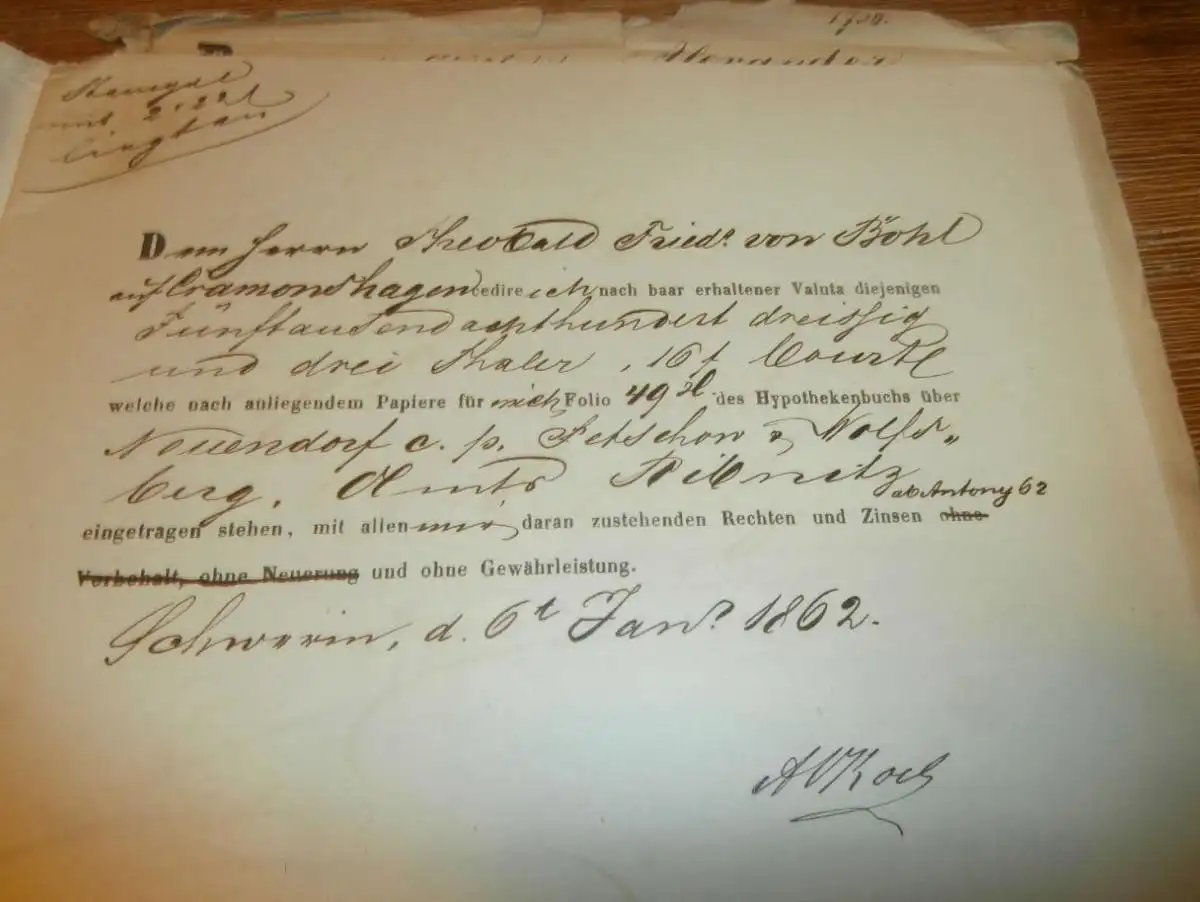 1730.
Stempel
mit
Dem Herrn Theobald Fried. von Böhl
auf Cramonshagen cedire ich nach baar erhaltener Valuta diejenigen
Fünftausend achthundert dreissig
und drei Thaler, 16 f Court
welche nach anliegendem Papiere für mich Folio 49 des Hypothekenbuchs über
Neuendorf c. p. Petschow & Wolfs„
berg, Amts Ribnitz ab Antony 62
eingetragen stehen, mit allen mir daran zustehenden Rechten und Zinsen ohne
Vorbehalt, ohne Neuerung und ohne Gewährleistung.
Schwerin, d. 6t Jan. 1862.
Koch